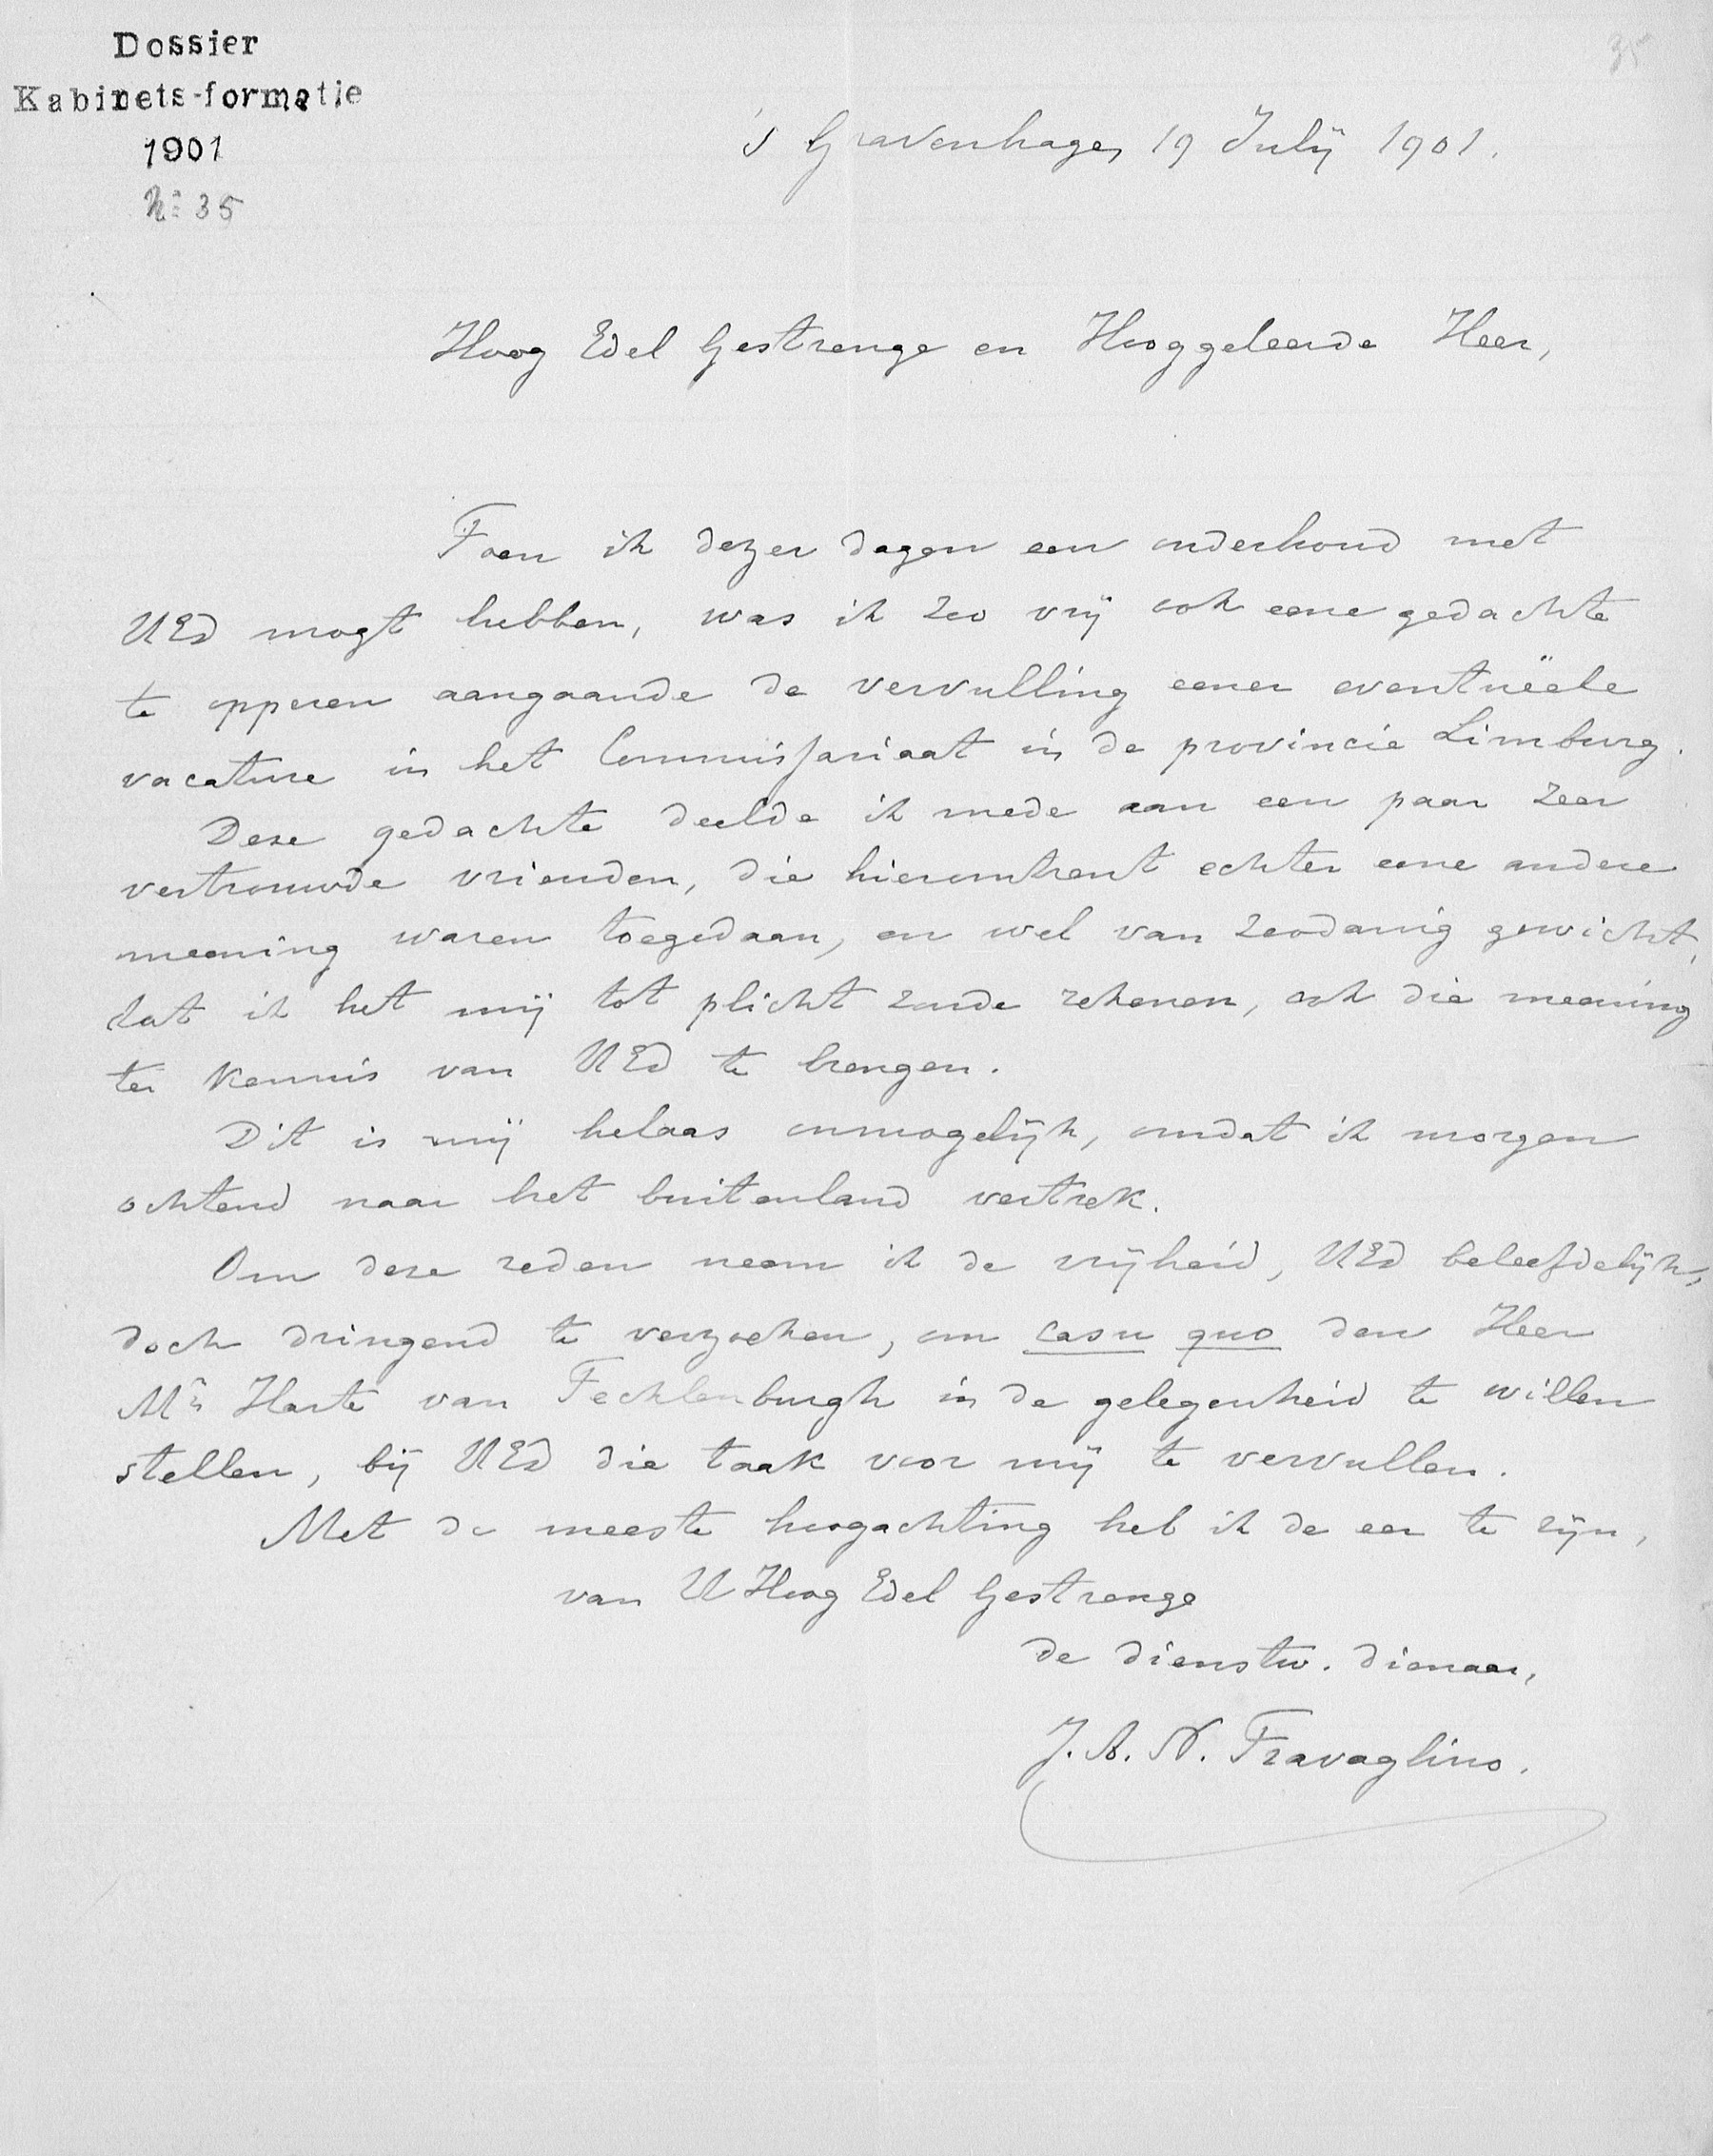 Dossier
Kabinets-formatie
1901
No 35
35
's Gravenhage, 19 Julij 1901.
Hoog Edel Gestrenge en Hooggeleerde Heer,
Toen ik dezer dagen een onderhoud met
UEd mogt hebben, was ik zoo vrij ook eene gedachte
te opperen aangaande de vervulling eener eventuëele
vacature in het Commissariaat in de provincie Limburg.
Deze gedachte deelde ik mede aan een paar zeer
vertrouwde vrienden, die hieromtrent echter eene andere
meening waren toegedaan, en wel van zoodanig gewicht,
dat ik het mij tot plicht zoude rekenen, ook die meening
ter kennis van UEd te brengen.
Dit is mij helaas onmogelijk, omdat ik morgen
ochtend naar het buitenland vertrek.
Om deze reden neem ik de vrijheid, UEd beleefdelijk,
doch dringend te verzoeken, om casu quo den Heer
Mr Harte van Tecklenburgh in de gelegenheid te willen
stellen, bij UEd die taak voor mij te vervullen.
Met de meeste hoogachting heb ik de eer te zijn,
van U Hoog Edel Gestrenge
de dienstw. dienaar,
J. A. N. Travaglino.